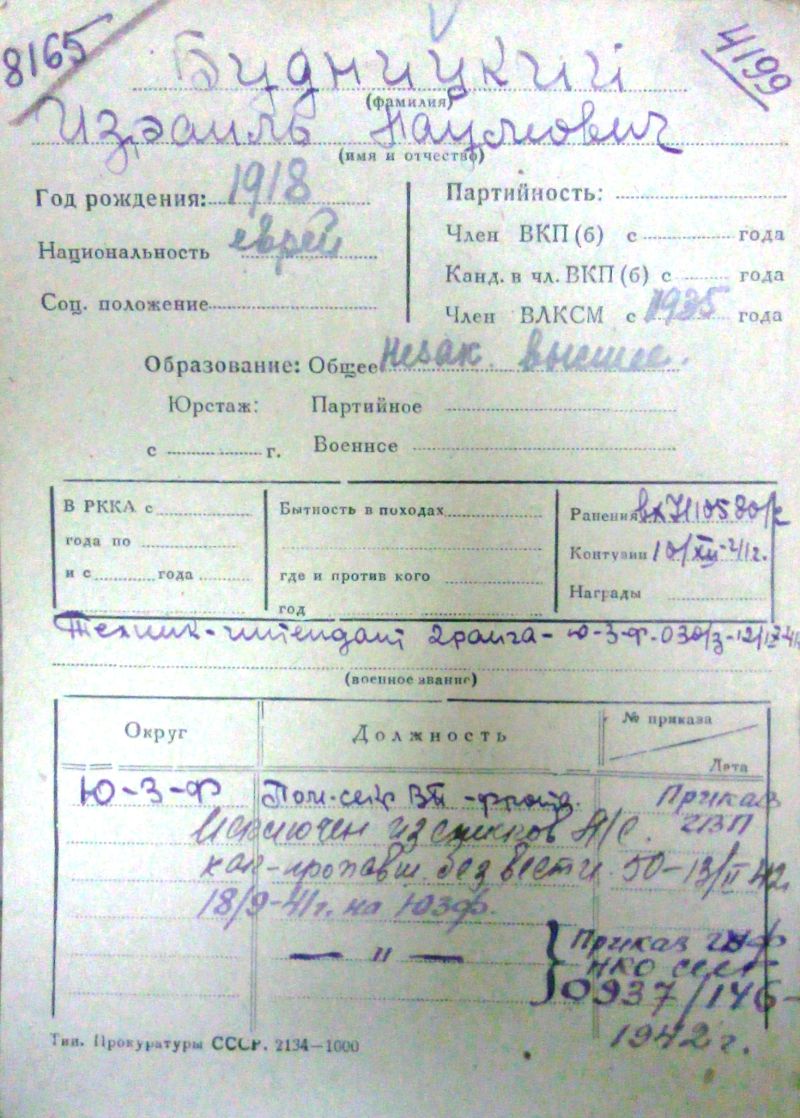 8165
4199
Будницкий
(фамилия)
Израиль Наумович
(имя и отчество)
Год рождения: 1918
Национальность еврей
Соц. положение
Партийность:
Член ВКП (б) с года
Канд. в чл. ВКП (б) с года
Член ВЛКСМ с 1935 года
Образование: Общее незак. высшее.
Юрстаж: Партийное
с г. Военное
В РККА с
года по
и с года
Бытность в походах
где и против кого
год
Ранения вх 71105 80/с
Контузии 10/XII-41г.
Награды
Техник-интендант 2 ранга - Ю-З-Ф-030/3-12/IX-41г
(военное звание)
Округ Должность № приказа
Дата
Ю-З-Ф Пом-секр ВП -фронта. Приказ
Исключен из списков н/с. ГВП
как-пропавш. без вести. 50-13/II 42г.
18/9-41г. на ЮЗФ.
— " — Приказ
НКО
0937/146-
1942 г.
Тип. Прокуратуры СССР. 2134—1000